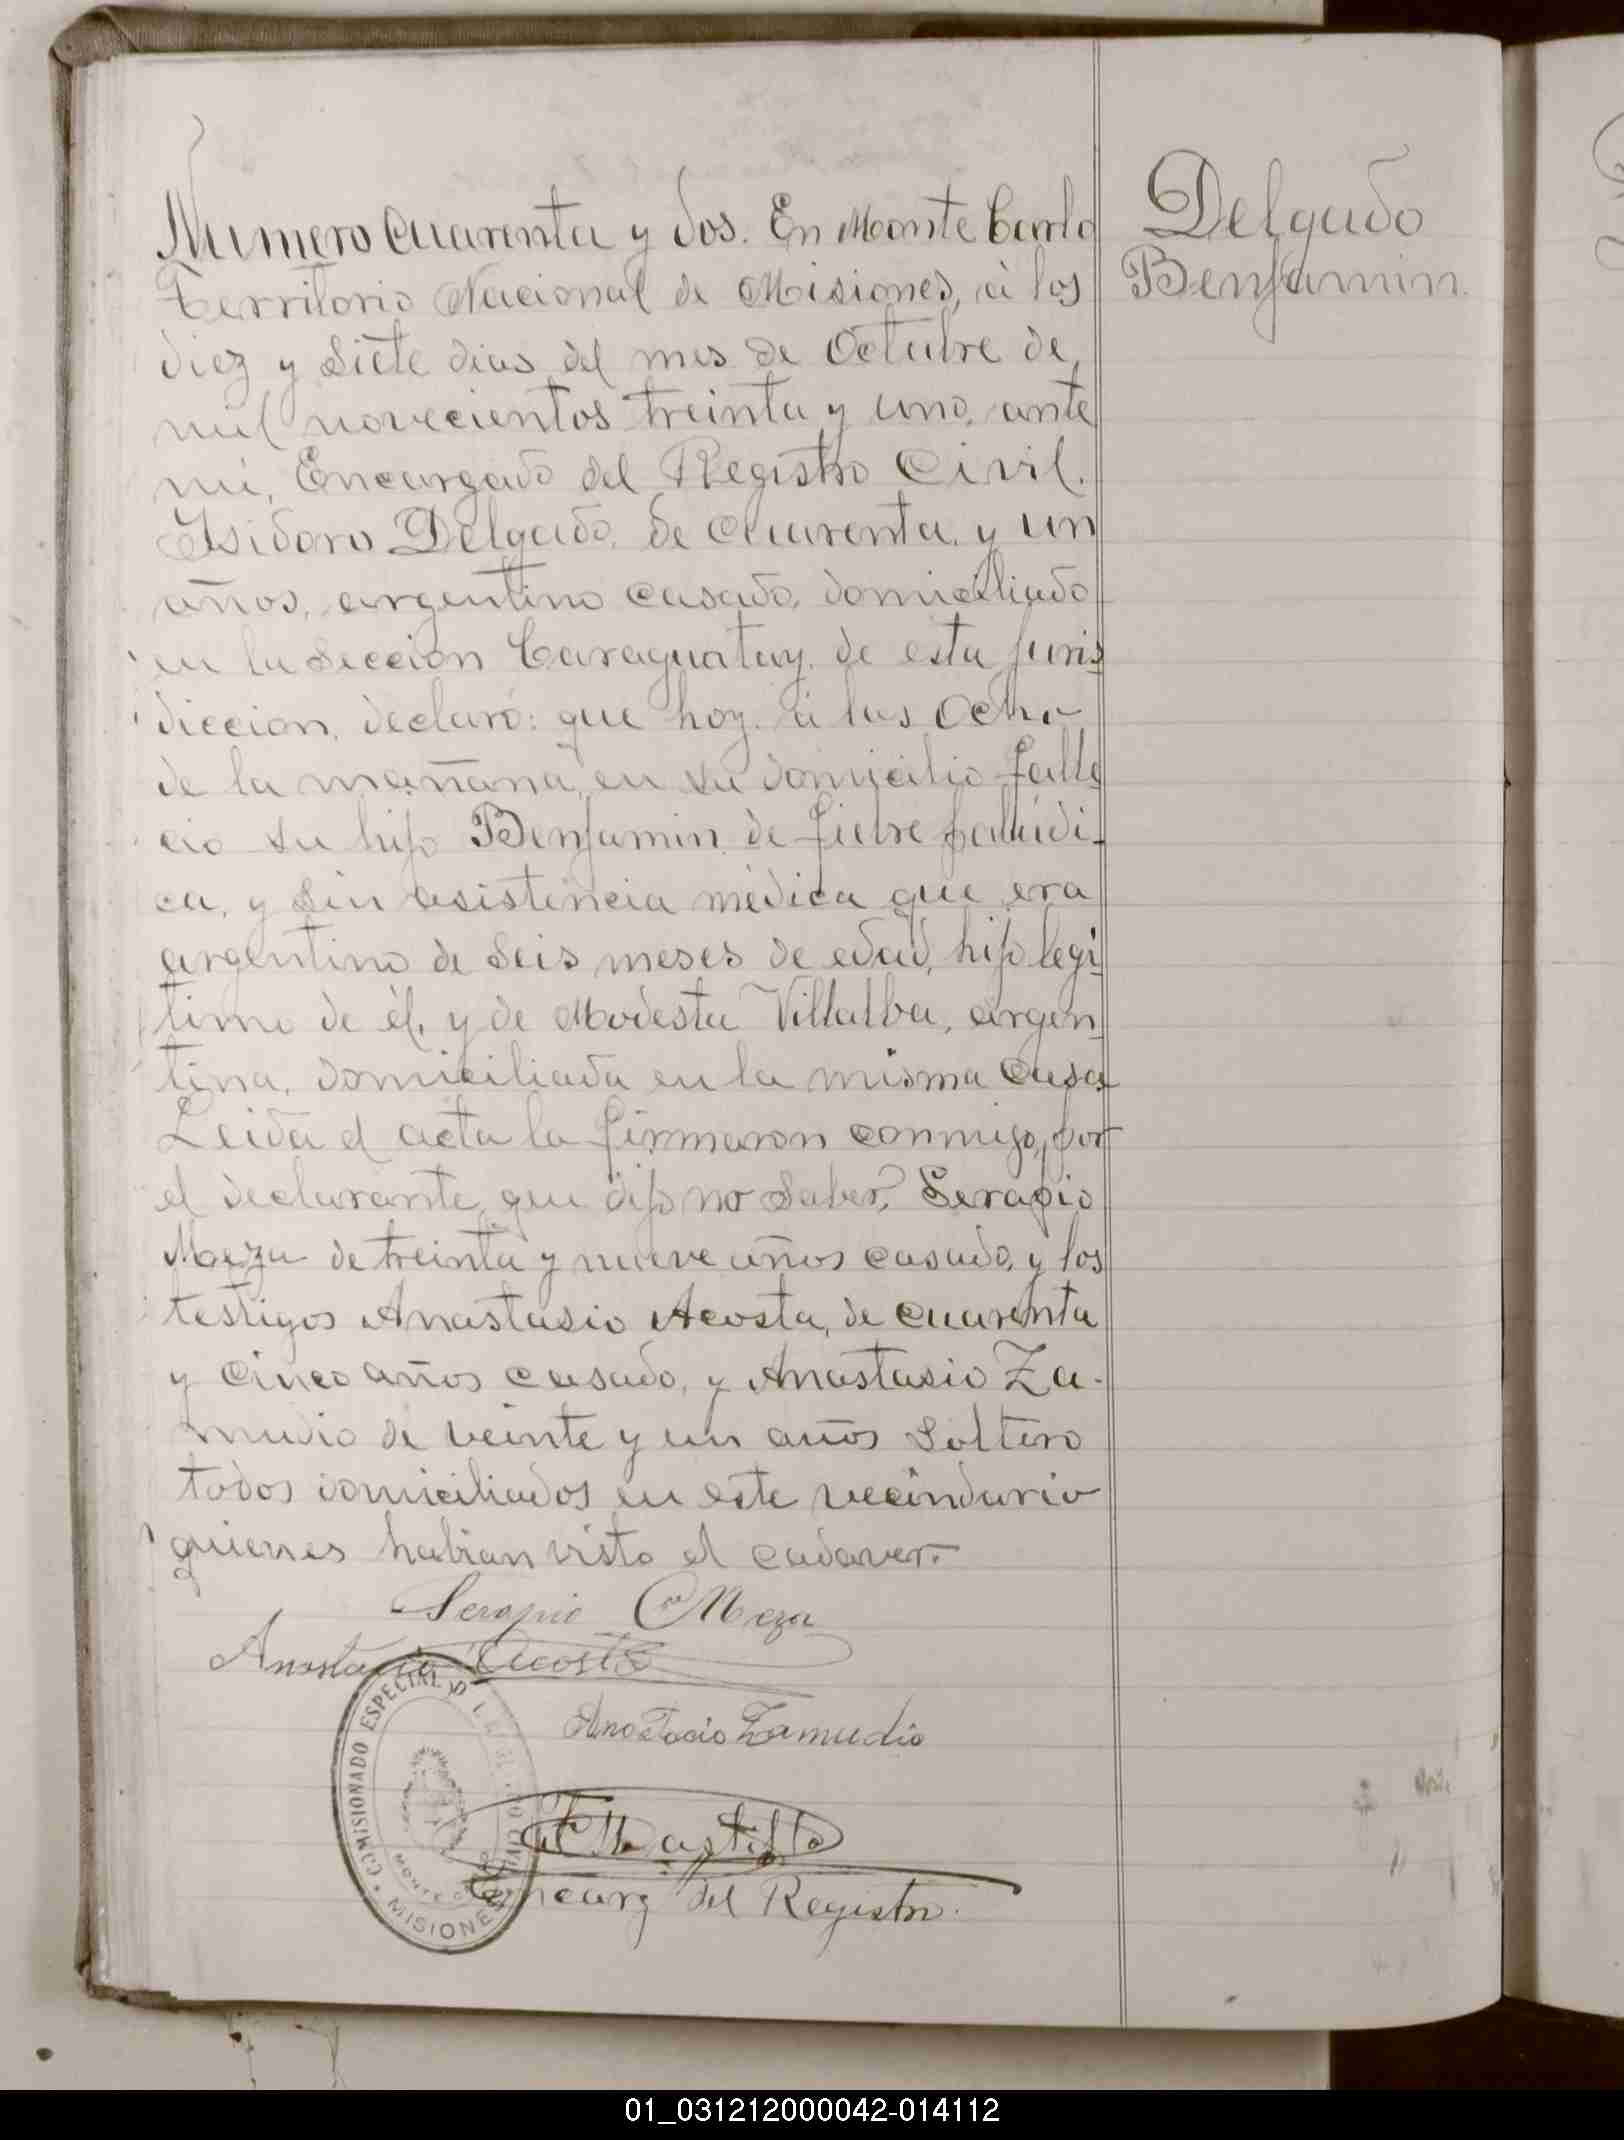 Numero cuarenta y dos. En Monte Carlo
Territorio Nacional de Misiones, á los
diez y siete dias del mes de Octubre de
mil novecientos treinta y uno, ante
mi, Encargado del Registro Civil.
Isidoro Delgado, de cuarenta y un
años, argentino casado, domiciliado
en la seccion Caraguatay, de esta juris
diccion, declaró: que hoy á las ocho
de la mañana, en su domicilio falle
cio su hijo Benjamin de fiebre palúdi-
ca, y sin asistencia médica que era
argentino de seis meses de edad, hijo legi
timo de él, y de Modesta Villalba, argen
tina, domiciliada en la misma casa
Leida el acta la firmaron conmigo, por
el declarante, que dijo no saber, Serapio
Meza de treinta y nueve años casado, y los
testigos Anastasio Acosta, de cuarenta
y cinco años casado, y Anastasio Za-
mudio de veinte y un años soltero
todos domiciliados en este vecindario
quienes habian visto el cadaver.
Serapio Meza
Anastacio Acosta
Anastacio Zamudio
Castillo
Encarg del Registro.
COMISIONADO ESPECIAL
MONTE
MISIONES
Delgado
Benjamin.
01_031212000042-014112